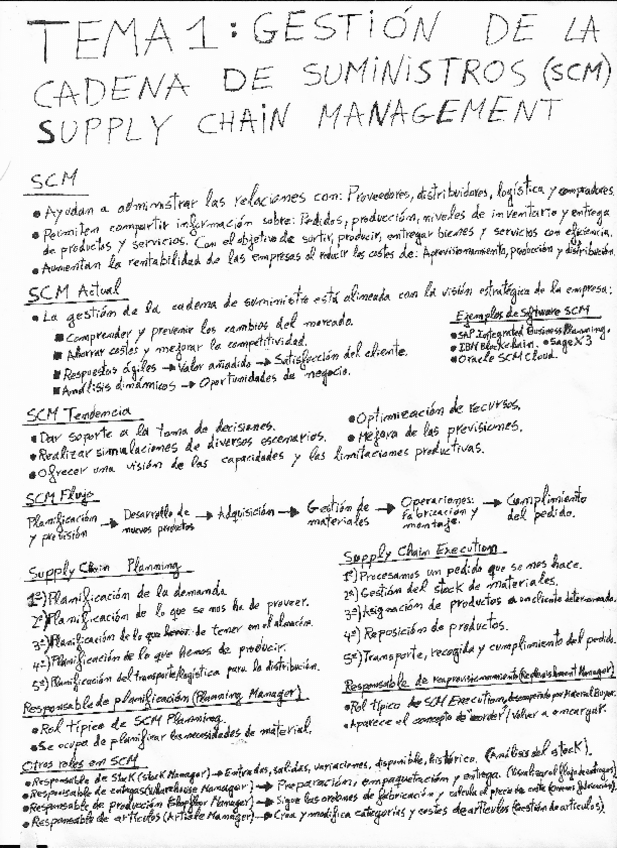 TEMA 1: GESTIÓN DE LA
CADENA DE SUMINISTROS (SCM)
SUPPLY CHAIN MANAGEMENT
SCM
• Ayudan a administrar las relaciones con: Proveedores, distribuidores, logística y compradores.
• Permiten compartir información sobre: Pedidos, producción, niveles de inventario y entrega
de productos y servicios. Con el objetivo de surtir, producir, entregar bienes y servicios con eficiencia.
• Aumentan la rentabilidad de las empresas al reducir los costes de: Aprovisionamiento, producción y distribución.
SCM Actual
• La gestión de la cadena de suministro está alineada con la visión estratégica de la empresa:
■ Comprender y prevenir los cambios del mercado.
■ Ahorrar costes y mejorar la competitividad.
■ Respuestas ágiles → Valor añadido → Satisfacción del cliente.
■ Análisis dinámicos → Oportunidades de negocio.
Ejemplos de Software SCM
• SAP Integrated Business Planning.
• IBM Blockchain. • Sage X3
• Oracle SCM Cloud.
SCM Tendencia
• Dar soporte a la toma de decisiones.
• Realizar simulaciones de diversos escenarios.
• Ofrecer una visión de las capacidades y las limitaciones productivas.
• Optimización de recursos.
• Mejora de las previsiones.
SCM Flujo
Planificación y previsión → Desarrollo de nuevos productos → Adquisición → Gestión de materiales → Operaciones: fabricación y montaje. → Cumplimiento del pedido.
Supply Chain Planning
1º) Planificación de la demanda.
2º) Planificación de lo que se nos ha de proveer.
3º) Planificación de lo que hemos de tener en el almacén.
4º) Planificación de lo que hemos de producir.
5º) Planificación del transporte/logística para la distribución.
Responsable de planificación (Planning Manager)
• Rol típico de SCM Planning.
• Se ocupa de planificar las necesidades de material.
Supply Chain Execution
1º) Procesamos un pedido que se nos hace.
2º) Gestión del stock de materiales.
3º) Asignación de productos a un cliente determinado.
4º) Reposición de productos.
5º) Transporte, recogida y cumplimiento del pedido.
Responsable de reaprovisionamiento (Replenishment Manager)
• Rol típico de SCM Execution, desempeñado por Material Buyer.
• Aparece el concepto de reorder / Volver a encargar.
Otros roles en SCM
• Responsable de Stock (Stock Manager) → Entradas, salidas, variaciones, disponible, histórico. (Análisis del stock).
• Responsable de entregas (Warehouse Manager) → Preparación, empaquetación y entrega. (Visualiza el flujo de entregas)
• Responsable de producción (Shopfloor Manager) → Sigue las órdenes de fabricación y calcula el precio de coste
• Responsable de artículos (Article Manager) → Crea y modifica categorías y costes de artículos (Gestión de artículos).